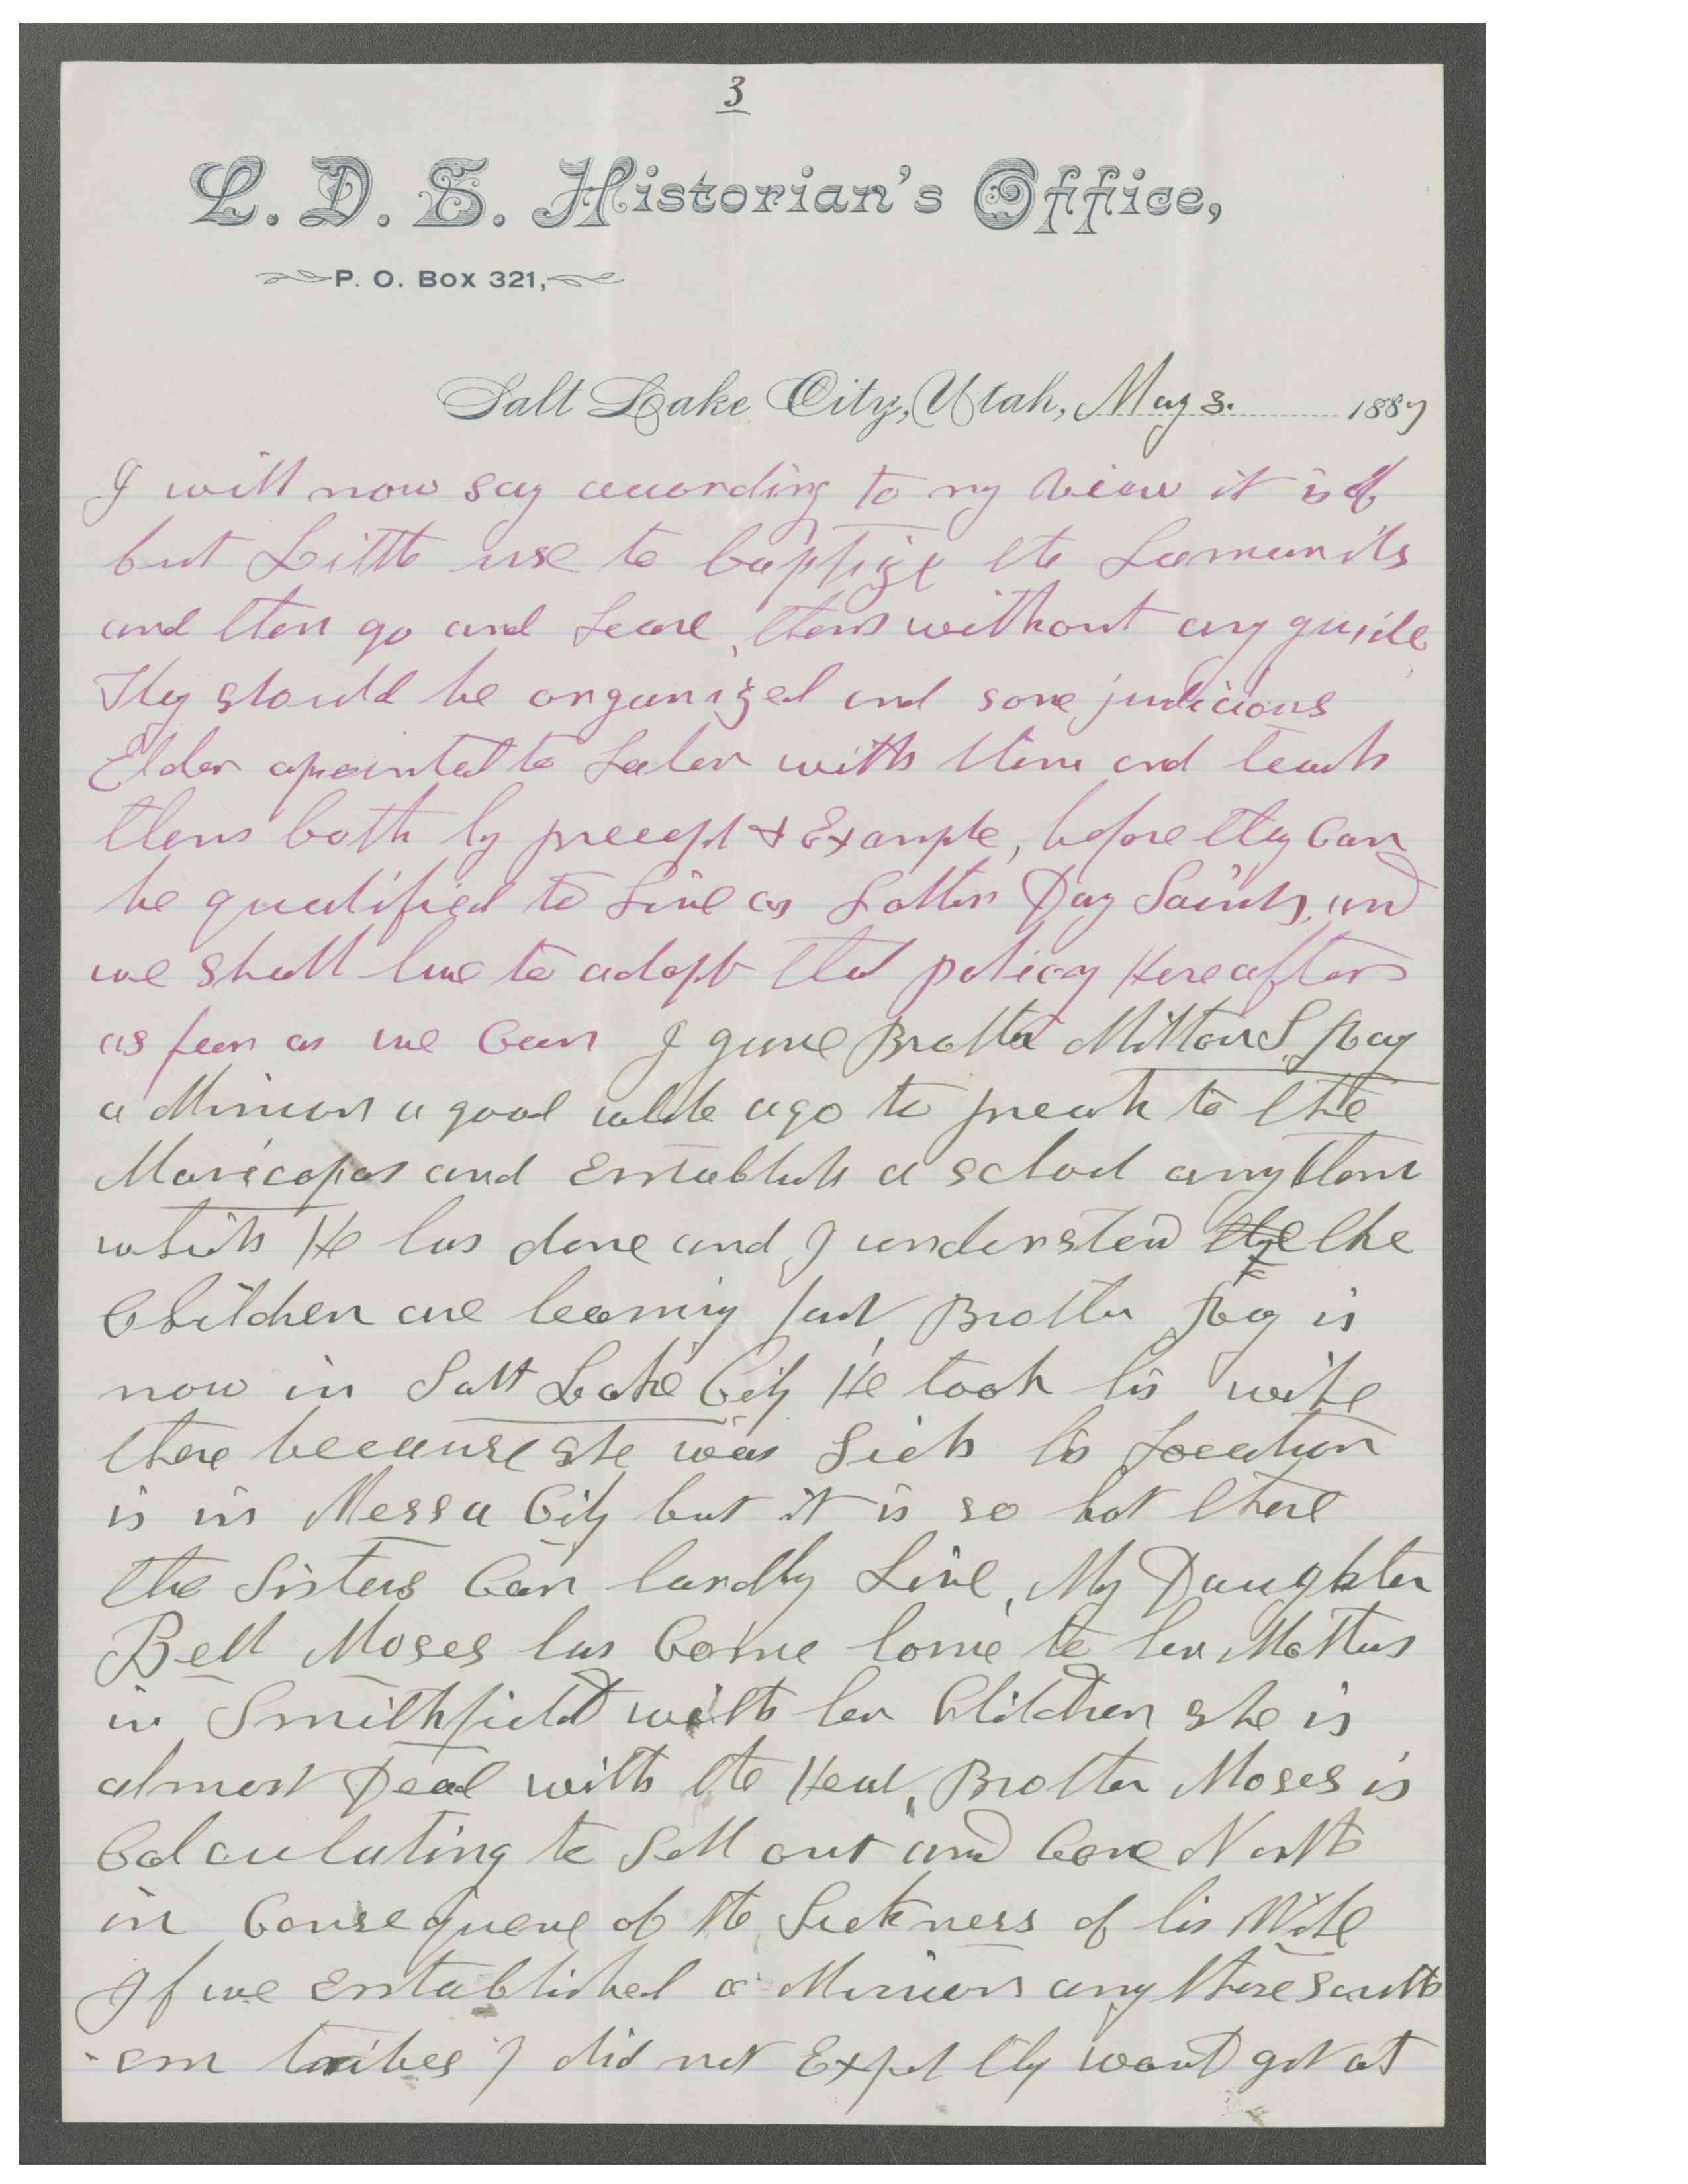 3
L. D. S. Historian's Office,
P. O. Box 321,
Salt Lake City, Utah, May 3. 1887
I will now say according to my view it is of
but Little use to baptize the Lamanits
and then go and Leave them without any guide
They should be organized and some judicious
Elder apointed to Labor with them and teach
them both by precept & Example, before they Can
be qualified to Live as Latter Day Saints, and
we shall have to adopt that policy Hereafter
as far as we Can I gave Brother Milton S. Ray
a Mission a good while ago to preach to the
Maricopas and Establish a school amg them
which He has done and I understand the
Children are learning fast, Brother Ray is
now in Salt Lake City He took his wife
there because she was Sick his Location
is in Messa City but it is so hot there
the Sisters Can hardly Live, My Daughter
Bell Moses has Come home to her Mothers
in Smithfield with her Children she is
almost Dead with the Heat, Brother Moses is
Calculating to Sell out and Come North
in Consequence of the Sickness of his Wife
If we Established a Mission amg those south
-ern tribes I did not Expect they would get at